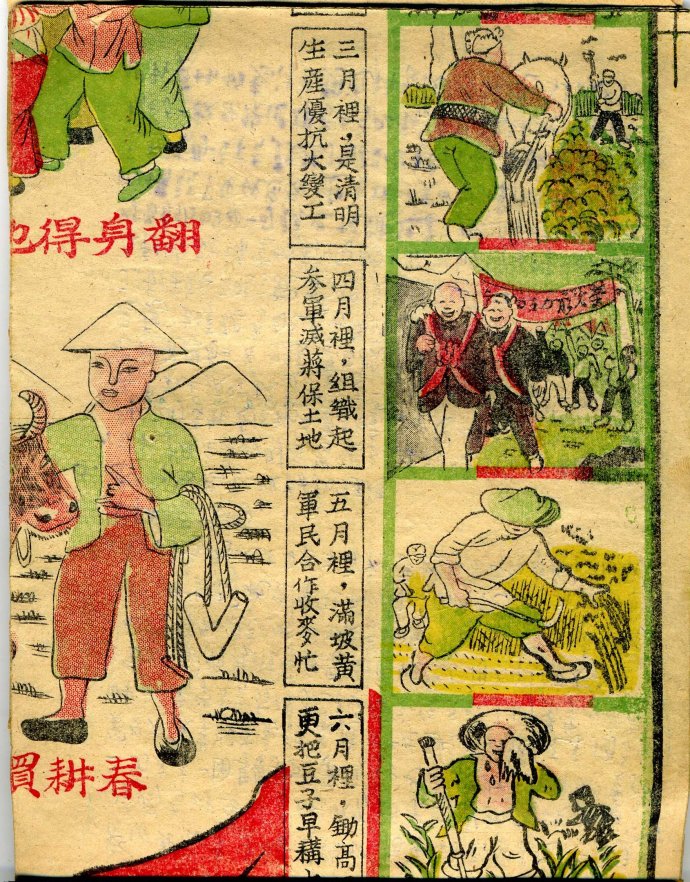 翻身得
春耕買
三月裡,是清明
生産優抗大變工
四月裡,組織起
参軍滅蔣保土地
五月裡,滿坡黃
軍民合作收麥忙
六月裡,鋤高
更把豆子早耩